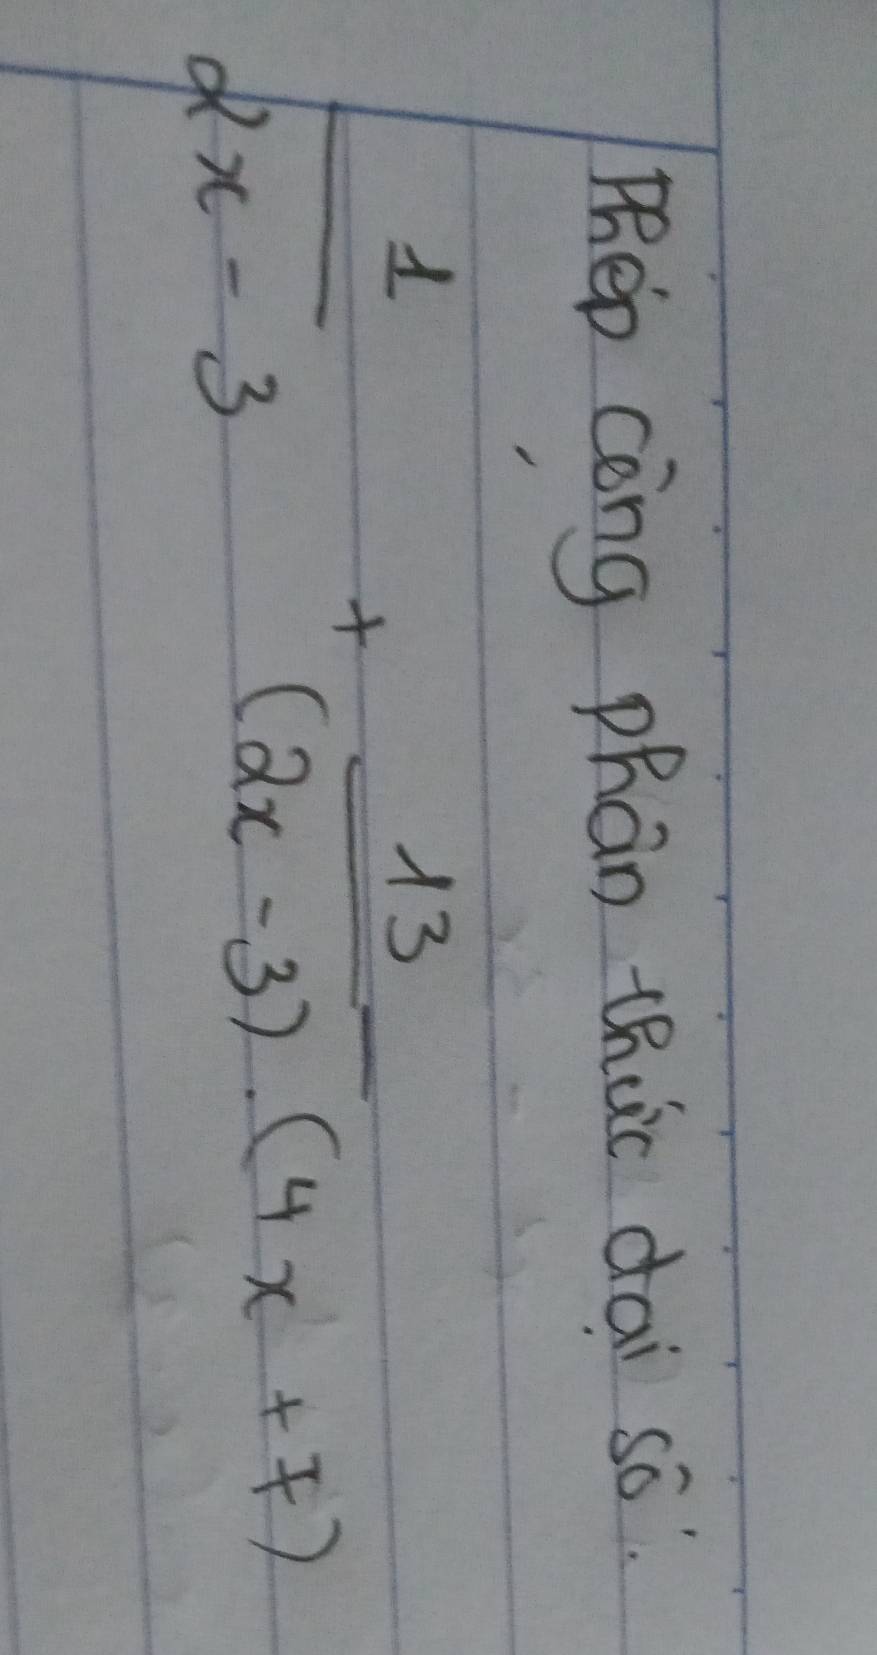 Phép công phân thức đại số.
1 13
+
2x - 3 (2x - 3) . (4x + 7)